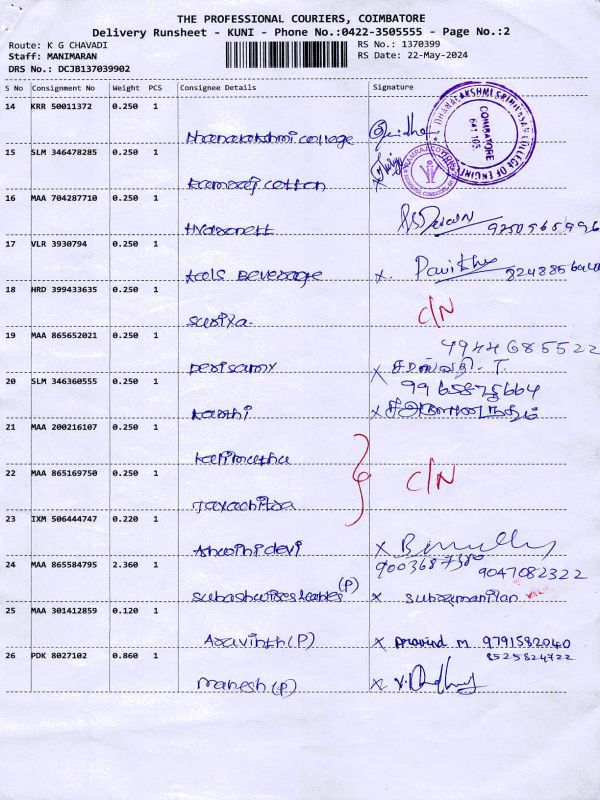 THE PROFESSIONAL COURIERS, COIMBATORE
Delivery Runsheet - KUNI - Phone No.:0422-3505555 - Page No.:2
Route: K G CHAVADI
Staff: MANIMARAN
DRS No.: DCJB137039902
RS No.: 1370399
RS Date: 22-May-2024
S No Consignment No Weight PCS Consignee Details Signature
14 KRR 50011372 0.250 1
Dhanalakshmi college
COIMBATORE
641 105
15 SLM 346478285 0.250 1
Kamraj cotton x
16 MAA 704287710 0.250 1
17 VLR 3930794 0.250 1
Kals Beverage x. Pavithra
18 HRD 399433635 0.250 1
C/N
Suriya.
19 MAA 865652021 0.250 1
9944685522
Perisamy x
20 SLM 346360555 0.250 1
Karthi x
21 MAA 200216107 0.250 1
Kalimuthu
C/N
22 MAA 865169750 0.250 1
Jayachitra
23 IXM 506444747 0.220 1
Ashwini devi x
9003687380
24 MAA 865584795 2.360 1
9047082322
(P) x Subramaniian
25 MAA 301412859 0.120 1
Aravinth (P) x Aravind M 9791582040
8525824722
26 PDK 8027102 0.860 1
Mahesh (P) x